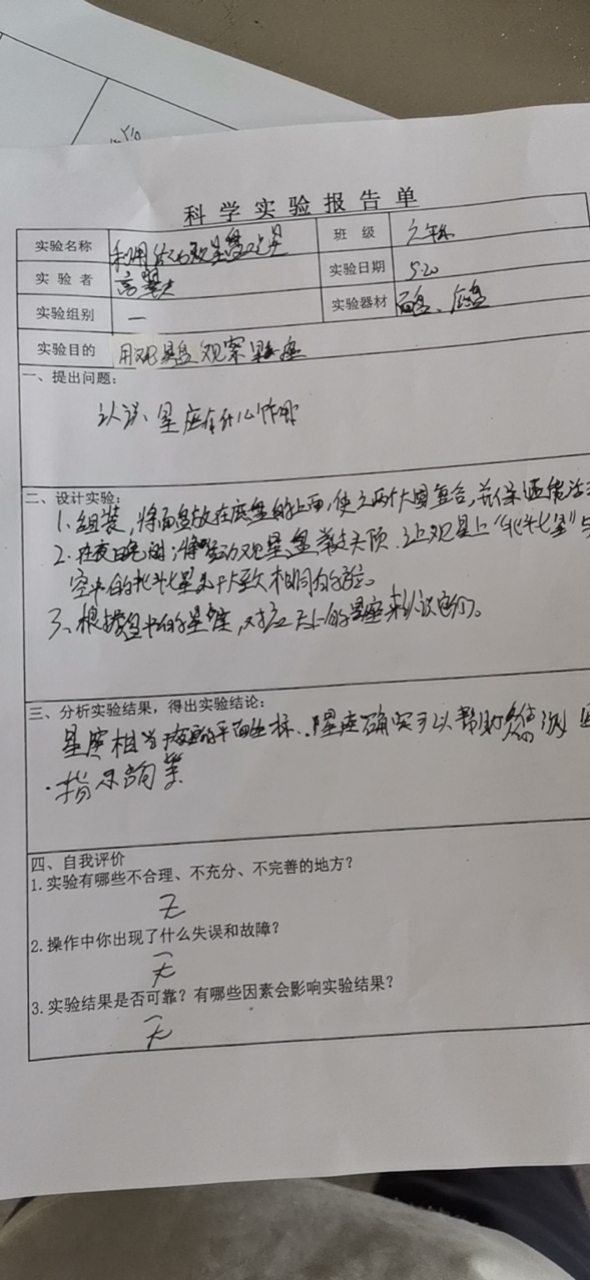 科学实验报告单
实验名称 利用 观星 星
班 级 六年
实验者 高翠
实验日期 5.20
实验组别 一
实验器材 面盘、底盘
实验目的 用观星盘观察星座
一、提出问题:
认识星座有什么作用
二、设计实验:
1、组装,将面盘放在底盘的上面,使之两个大圆复合,并保证能活
2、在夜晚时, 动观星盘 头顶,让观星上“北斗七星”与
空中的北斗七星 大致相同的方位。
3、根据盘中的星座,对应天上的星座来认识它们。
三、分析实验结果,得出实验结论:
星座相当于 平面坐标,星座确实可以帮助
指示
四、自我评价
1.实验有哪些不合理、不充分、不完善的地方?
无
2.操作中你出现了什么失误和故障?
无
3.实验结果是否可靠?有哪些因素会影响实验结果?
无